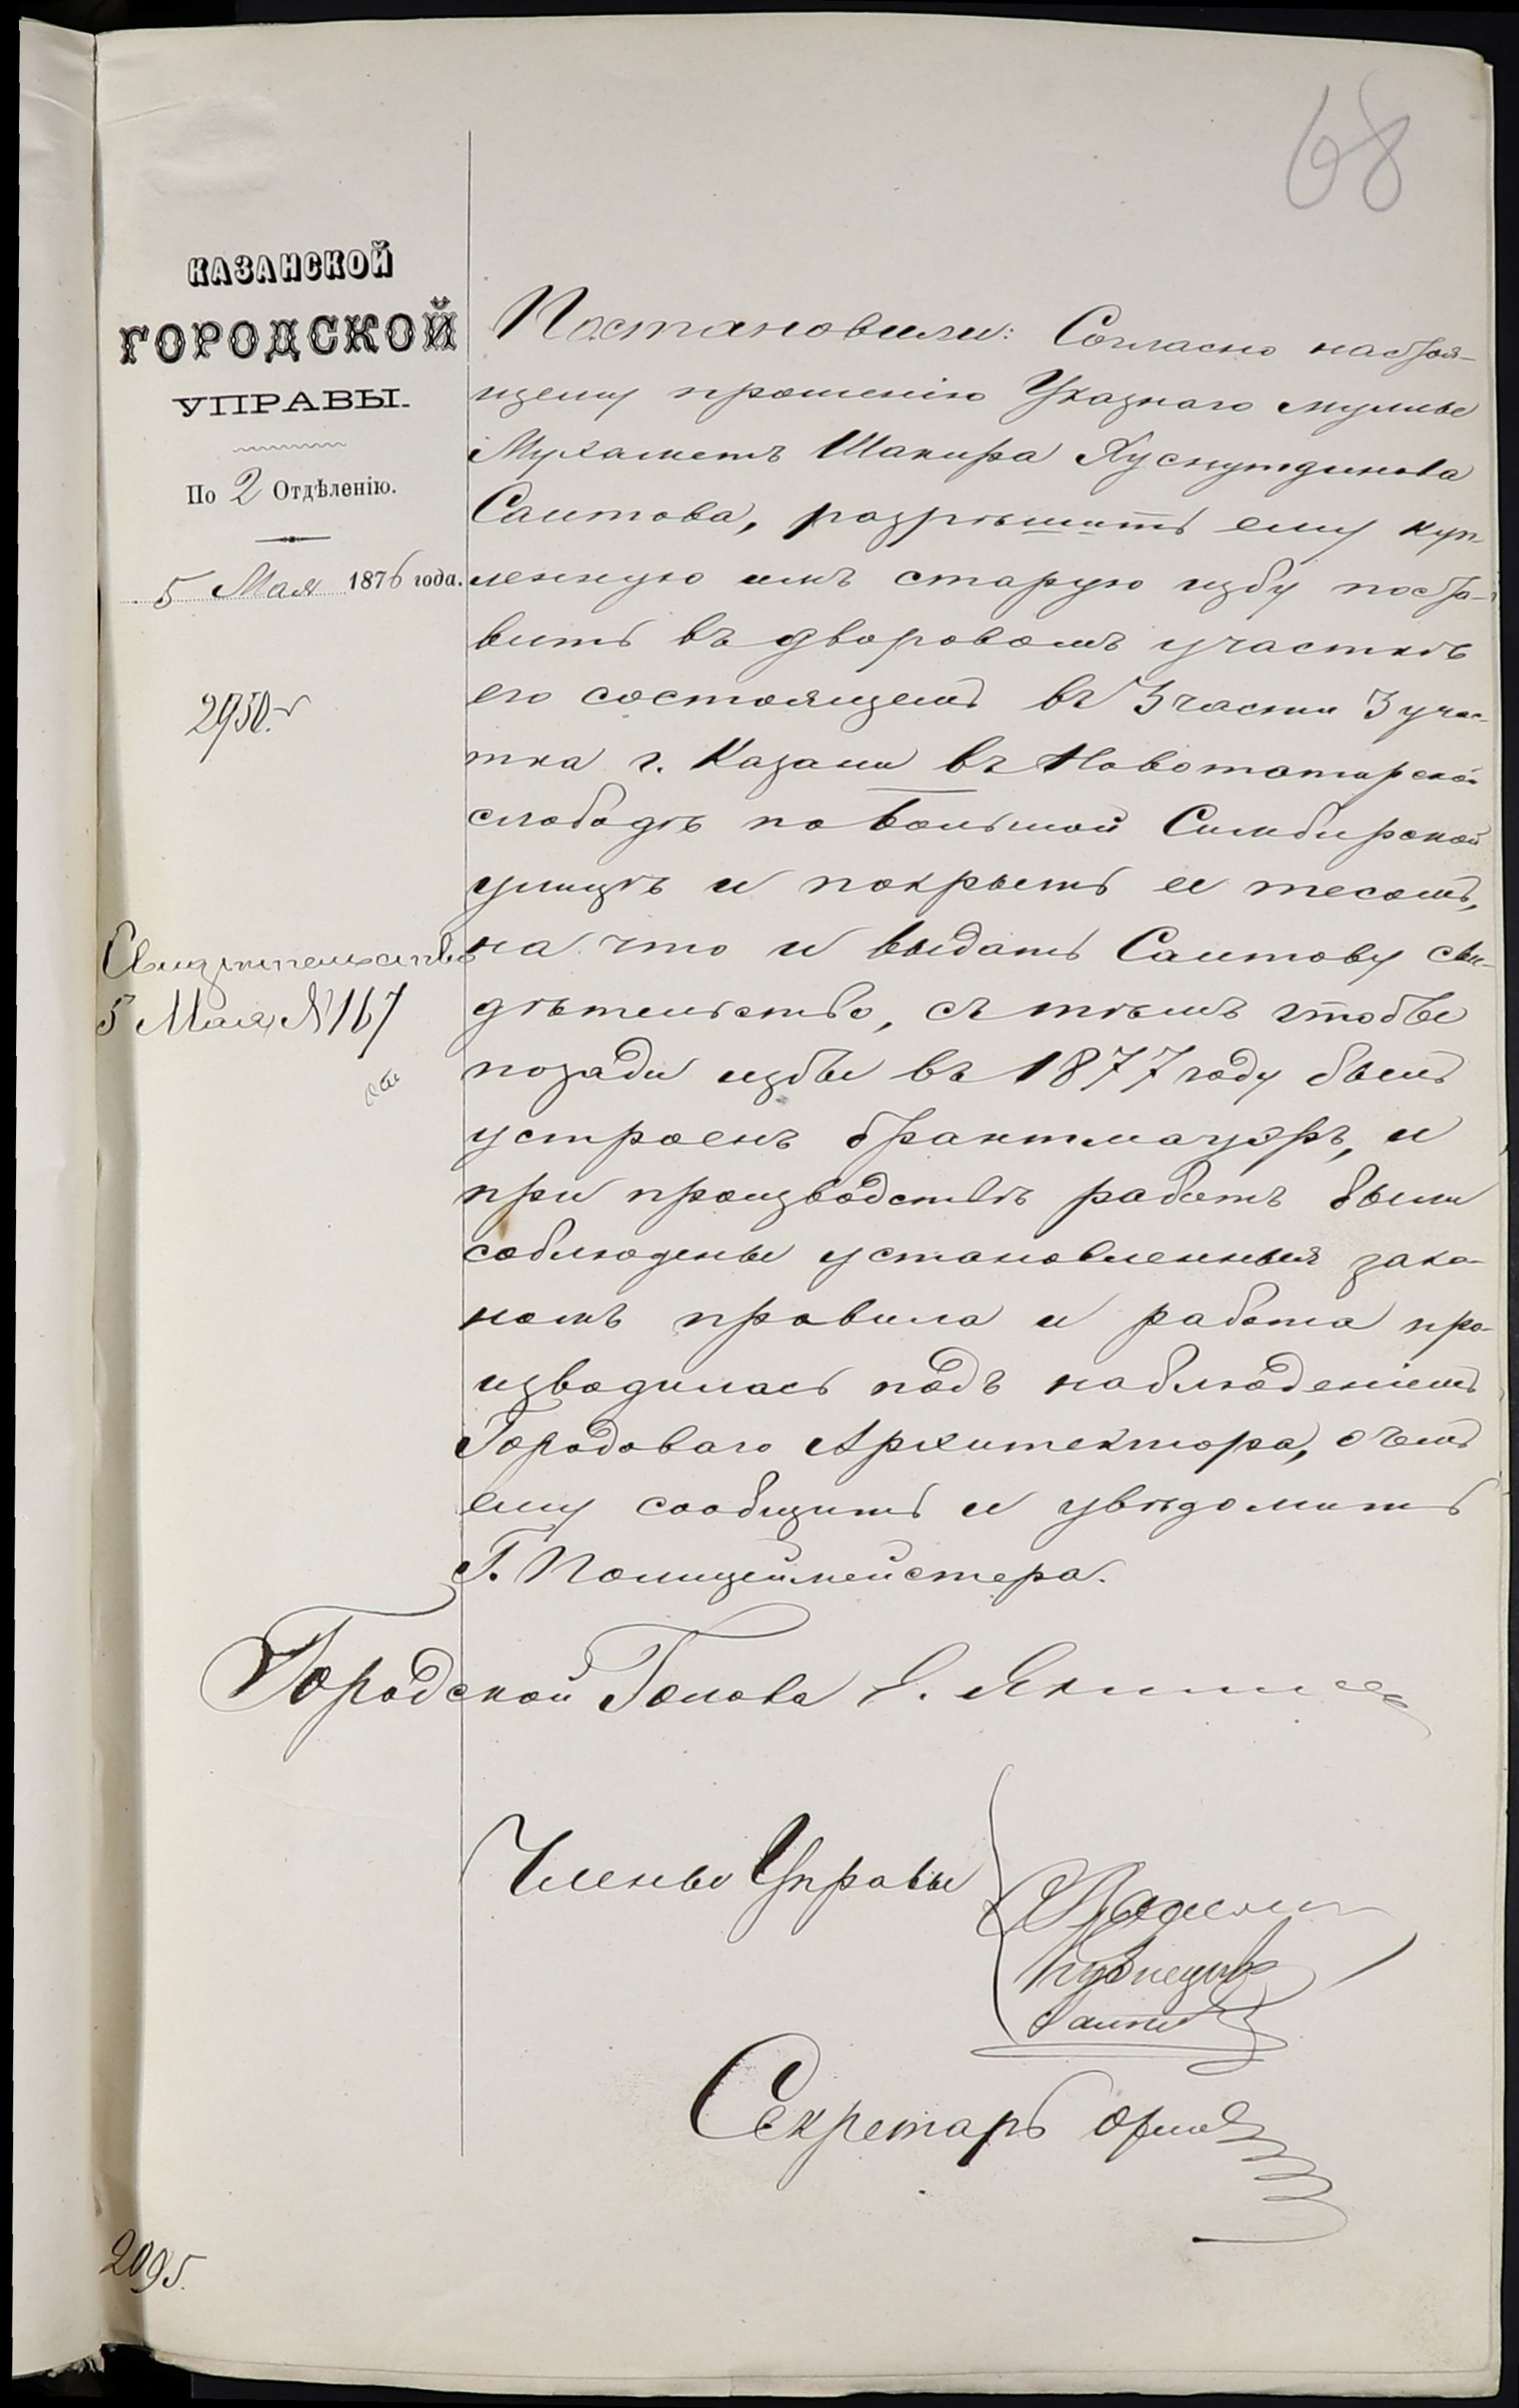 68
КАЗАНСКОЙ
ГОРОДСКОЙ
УПРАВЫ.
По 2 Отдѣленію.
5 Мая 1876 года.
2950.
Свидѣтельство
5 Мая № 167
Постановили: Согласно настоя-
щему прошенію Указнаго муллы
Мухаметъ Шакира Хуснутдинова
Саитова, разрѣшить ему куп-
ленную имъ старую избу поста-
вить въ дворовомъ участкѣ
его состоящемъ въ 3 части 3 учас-
тка г. Казани въ Новотатарской
слободѣ по Большой Симбирской
улицѣ и покрыть ее тесомъ,
на что и выдать Саитову сви-
дѣтельство, съ тѣмъ чтобы
позади избы въ 1877 году былъ
устроенъ брантмауэръ, и
при производствѣ работъ были
соблюдены установленныя зако-
номъ правила и работа про-
изводилась подъ наблюденіемъ
Городоваго Архитектора, о чемъ
ему сообщить и увѣдомить
Г. Полицеймейстера.
Городской Голова Э. Янишев
Члены Управы
Кузнецов
Секретарь Орлов
2095.